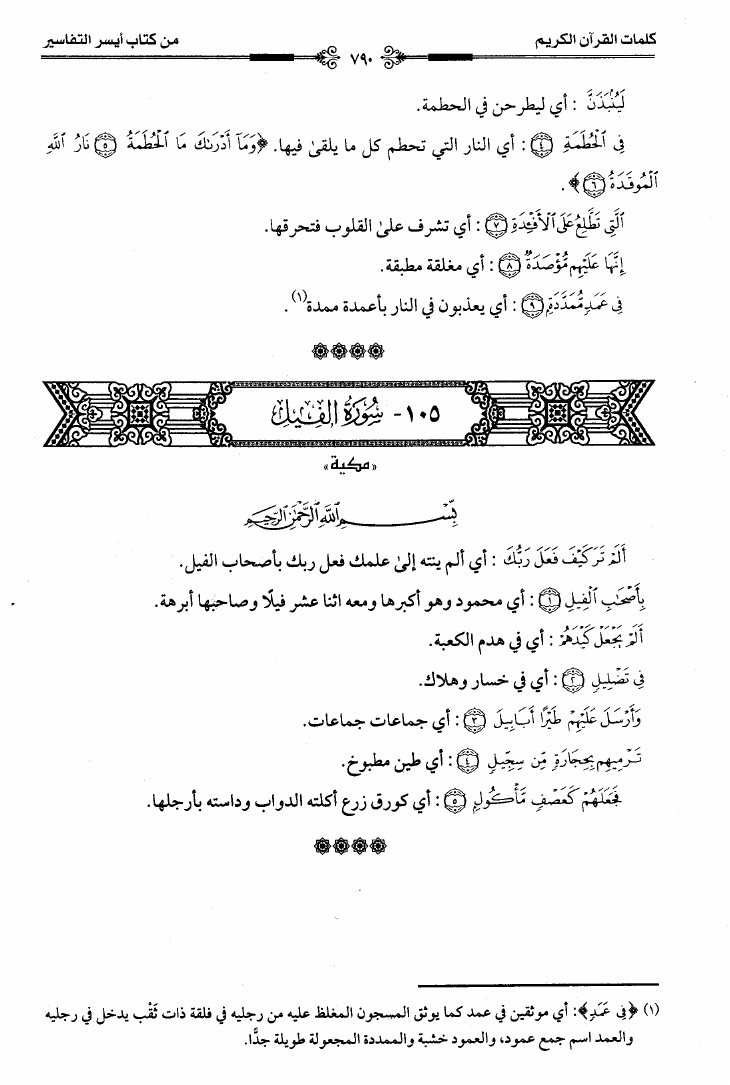 كلمات القرآن الكريم
٧٩٠
من كتاب أيسر التفاسير
لَيُنۢبَذَنَّ : أي ليطرحن في الحطمة.
فِى ٱلْحُطَمَةِ ﴿٤﴾ : أي النار التي تحطم كل ما يلقىٰ فيها. ﴿وَمَآ أَدْرَىٰكَ مَا ٱلْحُطَمَةُ ﴿٥﴾ نَارُ ٱللَّهِ
ٱلْمُوقَدَةُ ﴿٦﴾﴾.
ٱلَّتِى تَطَّلِعُ عَلَى ٱلْأَفْـِٔدَةِ ﴿٧﴾ : أي تشرف علىٰ القلوب فتحرقها.
إِنَّهَا عَلَيْهِم مُّؤْصَدَةٌ ﴿٨﴾ : أي مغلقة مطبقة.
فِى عَمَدٍ مُّمَدَّدَةٍۭ ﴿٩﴾ : أي يعذبون في النار بأعمدة ممدة(١).
١٠٥- سُورَةُ الفِيل
«مكية»
بِسْمِ ٱللَّهِ ٱلرَّحْمَٰنِ ٱلرَّحِيمِ
أَلَمْ تَرَ كَيْفَ فَعَلَ رَبُّكَ : أي ألم ينته إلىٰ علمك فعل ربك بأصحاب الفيل.
بِأَصْحَٰبِ ٱلْفِيلِ ﴿١﴾ : أي محمود وهو أكبرها ومعه اثنا عشر فيلًا وصاحبها أبرهة.
أَلَمْ يَجْعَلْ كَيْدَهُمْ : أي في هدم الكعبة.
فِى تَضْلِيلٍ ﴿٢﴾ : أي في خسار وهلاك.
وَأَرْسَلَ عَلَيْهِمْ طَيْرًا أَبَابِيلَ ﴿٣﴾ : أي جماعات جماعات.
تَرْمِيهِم بِحِجَارَةٍ مِّن سِجِّيلٍ ﴿٤﴾ : أي طين مطبوخ.
فَجَعَلَهُمْ كَعَصْفٍ مَّأْكُولٍۭ ﴿٥﴾ : أي كورق زرع أكلته الدواب وداسته بأرجلها.
(١) ﴿فِى عَمَدٍ﴾: أي موثقين في عمد كما يوثق المسجون المغلظ عليه من رجليه في فلقة ذات ثَقْب يدخل في رجليه
والعمد اسم جمع عمود، والعمود خشبة والممددة المجعولة طويلة جدًّا.